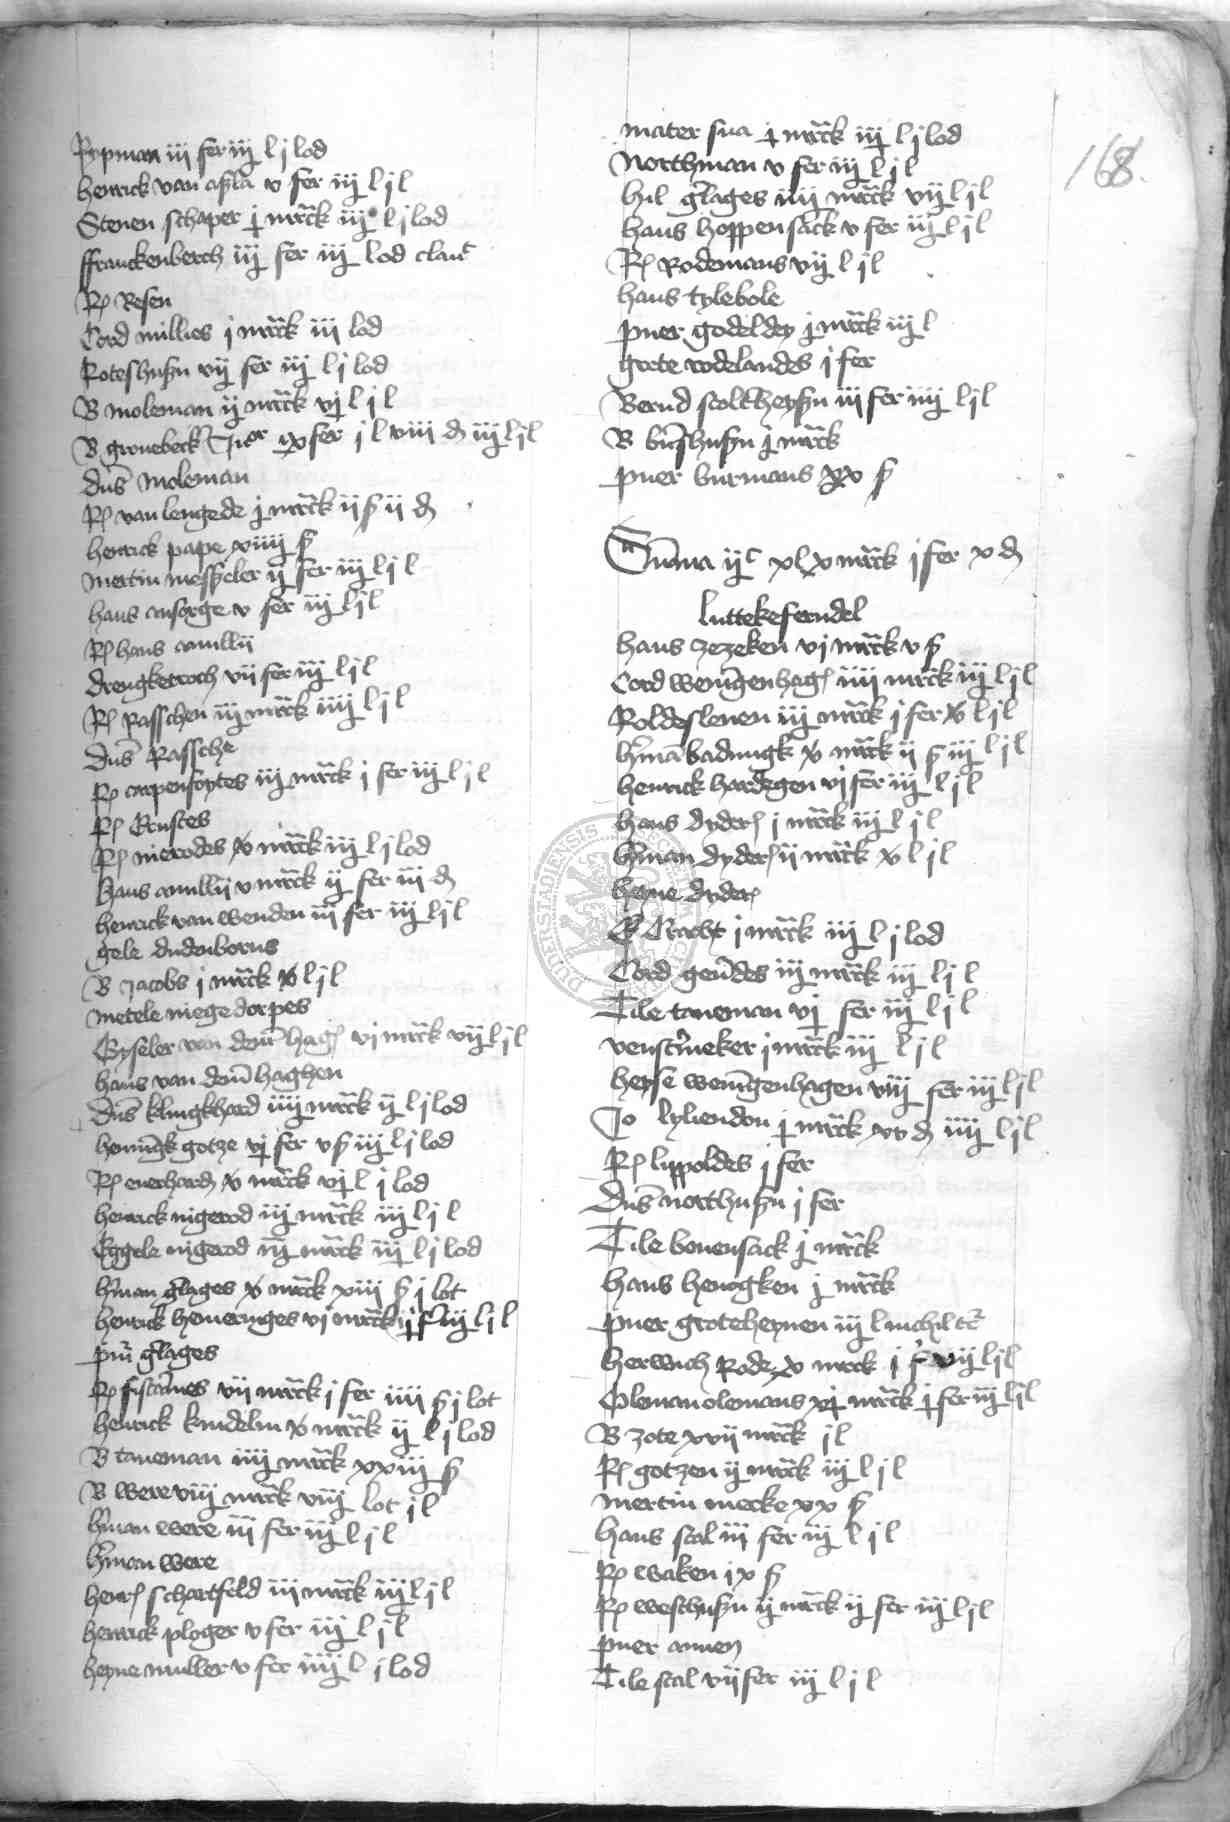 168
Pypman iij fer iij l j lod
henrick van asla v fer iij l j l
Stenen schaper j marck iij l j lod
ffranckenberch iij fer iij lod
Rel Resen
Cord millies j marck iij lod
Roteshusen vij fer iij l j lod
B moleman ij marck vj l j l
B gronebeck ix fer j l viii d iij l j l
Dns Moleman
Rel van lengede j marck ij s ij d
henrick pape xiiij s
Mertin messeler ij fer iij l j l
hans ansorge v fer iij l j l
Rel hans
drengketroch vij fer iij l j l
Rel Rasschen iij marck iiij l j l
Dns Rassche
Rel iij marck j fer iij l j l
Rel Ernstes
Rel nierodes x marck iij l j lod
hans v marck ij fer iij d
henrick van wenden iij fer iij l j l
gele dudenborns
B Jacobs j marck x l j l
metele niegedorpes
Gyseler van dem hag vj marck vij l j l
hans van dem haghen
Dns klingkhard iiij marck ij l j lod
henningk gotze vj fer v s iij l j lod
Rel everhard x marck vj l j lod
henrick nigerod iij marck iij l j l
Eggele nigerod iij marck iij l j lod
herman glages x marck xiii s j lot
henrick hemeringes vj marck l j l
glages
Rel vij marck j fer iiij s j lot
henrick kindelin x marck ij l j lod
B taneman iiij marck xxiij s
B were viij marck viij lot j l
herman were iij fer iij l j l
herman were
henr schartfeld iij marck iij l j l
henrick ploger v fer iij l j l
heyne muller v fer iiij l j lod
mater sua j marck iij l j lod
Northman v fer iij l j l
hil glages iiij marck vij l j l
hans hoppensack v fer iij l j l
Rel Rodemans vij l j l
hans tylebole
puer godeldey j marck iij l
grote rodelandes j fer
Bernd stoltheysen iij fer iiij l j l
B j marck
puer burmans xxv s
Summa ijc xlv marck j fer x d
luttekeferndel
hans zezeken vj marck v s
Cord wenigenhag iiij marck iij l j l
Roldeslenen iij marck j fer x l j l
herman badungk x marck ij s iij l j l
henrick hardegen vj fer iij l j l
hans dyder j marck iij l j l
herman dyder ij marck x l j l
heyne dyder
Cracht j marck iij l j lod
Cord gerdes iij marck iij l j l
Tile taneman vj fer iij l j l
venstermeker j marck iij l j l
heyse wenigenhagen viij fer iij l j l
Jo lyliendon j marck xv d iiij l j l
Rel luppoldes j fer
Dns northusen j fer
Tile bonensack j marck
hans henigken j marck
puer groteheynen iij l
herwich Rode x marck j f vij l j l
Oleman olemans xj marck j fer iij l j l
B zote xvij marck j l
Rel gotzen ij marck iij l j l
Mertin mecke xx s
hans stal iij fer iij l j l
Rel waken ix s
Rel westhusen ij marck ij fer iij l j l
puer annen
Tile stal vij fer iij l j l